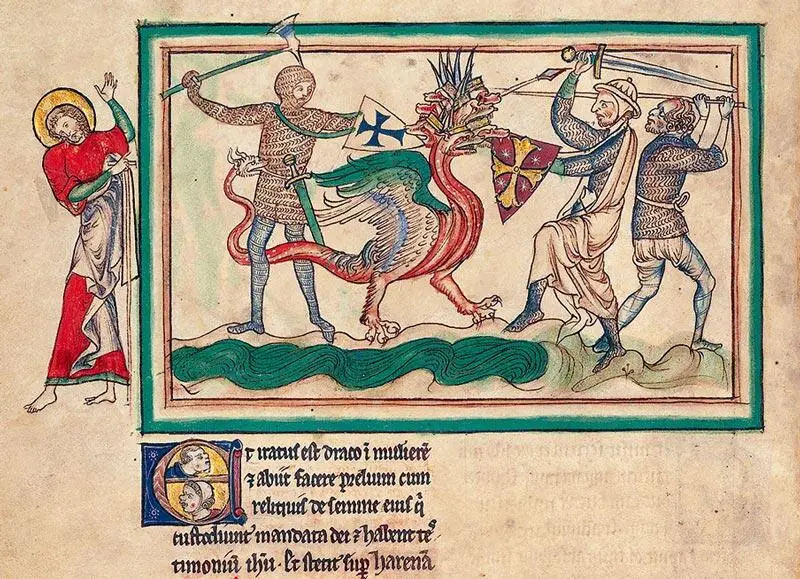 Et iratus est draco ĩ mulierē
⁊ abiit facere prelium cum
reliquis de semine eius qͥ
custodiunt mandata dei ⁊ habent tes
timoniū ihū. Et stetit suꝑ harenā